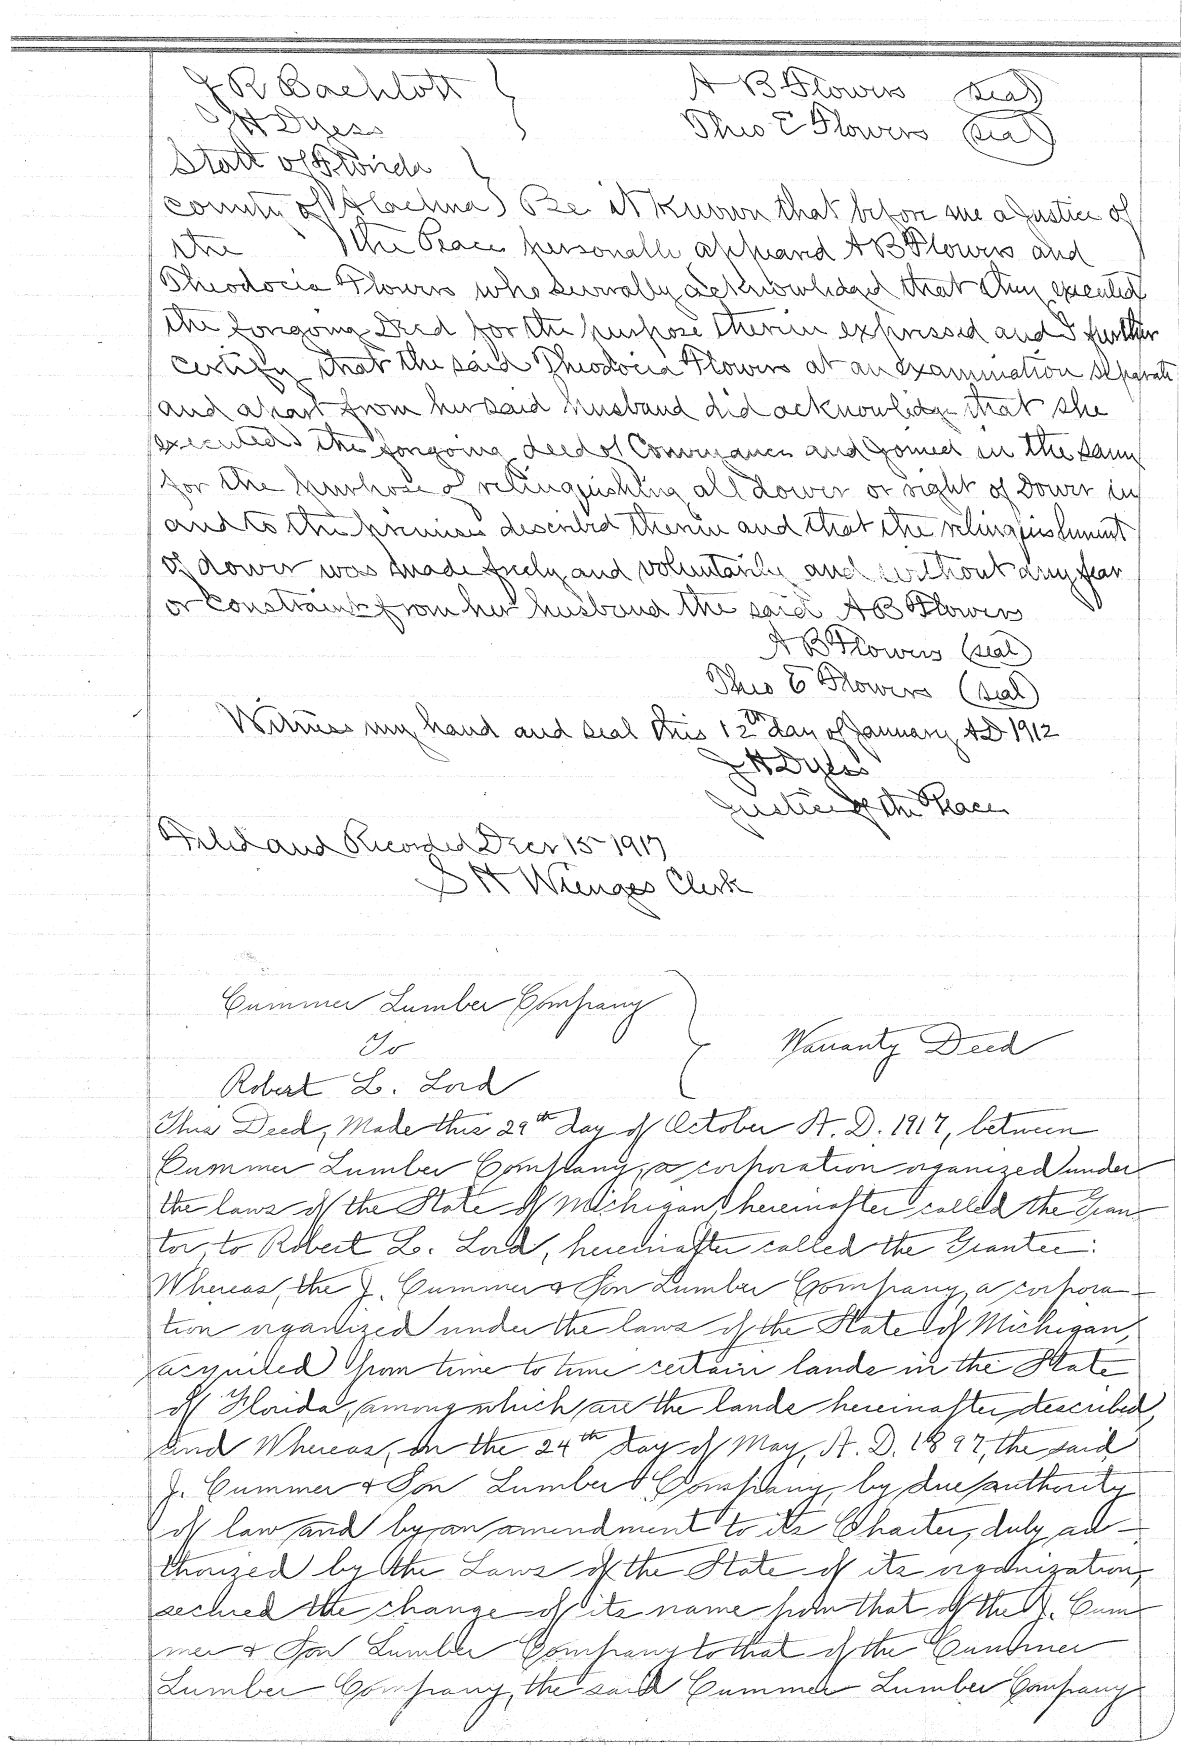 J R Bachlott } A B Flowers (seal)
J H Dyess Theo E Flowers (seal)
State of Florida }
County of Alachua } Be it Known that before me a Justice of
the the Peace personally appeared A B Flowers and
Theodocia Flowers who severally acknowledged that they executed
the forgoing Deed for the purpose therein expressed and I further
certify that the said Theodocia Flowers at an examination separate
and apart from her said husband did acknowledge that she
executed the forgoing deed of Conveyance and Joined in the same
for the purpose of relinquishing all dower or right of Dower in
and to the premises described therein and that the relinquishment
of dower was made freely and voluntarily and without any fear
or constraint from her husband the said A B Flowers
A B Flowers (seal)
Theo E Flowers (seal)
Witness my hand and seal this 12th day of January AD 1912
J H Dyess
Justice of the Peace
Filed and Recorded Decr 15 1917
S H Wienges Clerk
Cummer Lumber Company
To } Warranty Deed
Robert L. Lord
This Deed, Made this 29th day of October A. D. 1917, between
Cummer Lumber Company, a corporation organized under
the laws of the State of Michigan, hereinafter called the Gran
tor, to Robert L. Lord, hereinafter called the Grantee:
Whereas, the J. Cummer & Son Lumber Company, a corpora-
tion organized under the laws of the State of Michigan,
acquired from time to time certain lands in the State
of Florida, among which are the lands hereinafter described,
and Whereas, on the 24th day of May, A. D. 1897, the said
J. Cummer & Son Lumber Company, by due authority
of law and by an amendment to its Charter, duly au-
thorized by the Laws of the State of its organization,
secured the change of its name from that of the J. Cum
mer & Son Lumber Company to that of the Cummer
Lumber Company, the said Cummer Lumber Company